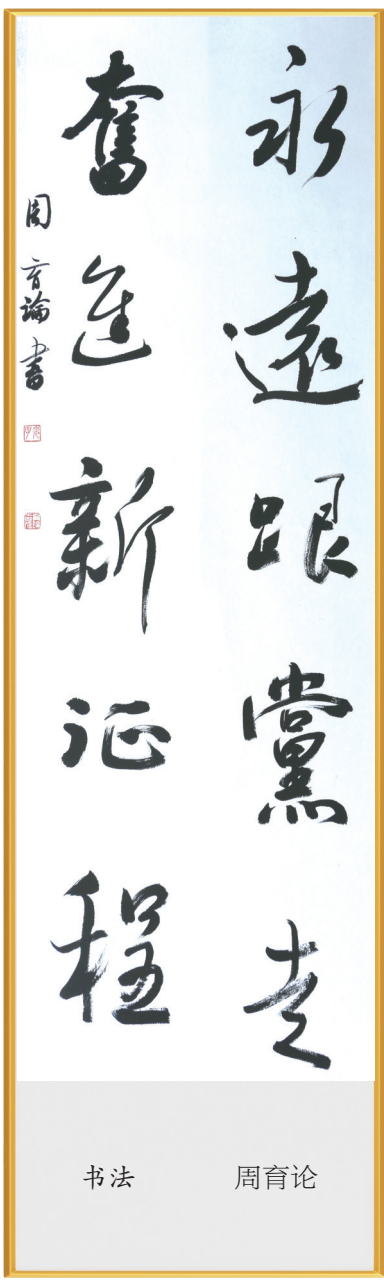 永遠跟黨走
奮進新征程
周育論書
书法 周育论